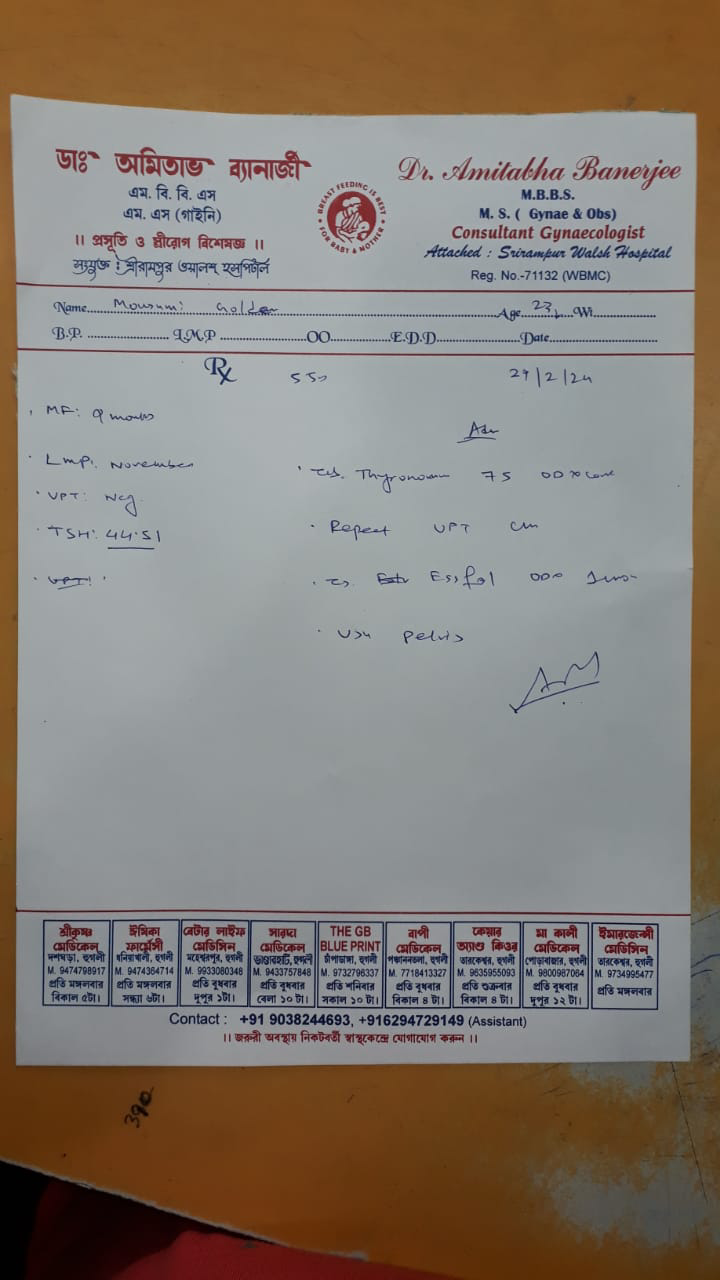 ডাঃ অমিতাভ ব্যানার্জী
এম. বি. বি. এস
এম. এস (গাইনি)
।। প্রসূতি ও স্ত্রীরোগ বিশেষজ্ঞ ।।
সংযুক্ত : শ্রীরামপুর ওয়ালশ্ হসপিটাল
BREAST FEEDING IS BEST FOR BABY & MOTHER
Dr. Amitabha Banerjee
M.B.B.S.
M. S. ( Gynae & Obs)
Consultant Gynaecologist
Attached : Srirampur Walsh Hospital
Reg. No.-71132 (WBMC)
Name Mousumi Golder Age 23 Wt
B.P. L.M.P OO E.D.D Date
Rx 550 29/2/24
MF: 9 months
Adv
LMP: November
Thyronorm 75 OD
UPT: Neg.
Repeat UPT
TSH: 44.51
UPT:
OD
USG Pelvis
শ্রীকৃষ্ণ মেডিকেল
দশঘড়া, হুগলী
M. 9474798917
প্রতি মঙ্গলবার
বিকাল ৫টা।
ঈশিকা ফার্মেসী
ধনিয়াখালী, হুগলী
M. 9474364714
প্রতি মঙ্গলবার
সন্ধ্যা ৬টা।
বেটার লাইফ মেডিসিন
মহেশ্বরপুর, হুগলী
M. 9933080348
প্রতি বুধবার
দুপুর ১টা।
সারদা মেডিকেল
ভাণ্ডারহাটি, হুগলী
M. 9433757848
প্রতি বুধবার
বেলা ১০ টা।
THE GB BLUE PRINT
চাঁপাডাঙ্গা, হুগলী
M. 9732796337
প্রতি শনিবার
সকাল ১০ টা।
বাপী মেডিকেল
পঞ্চাননতলা, হুগলী
M. 7718413327
প্রতি বুধবার
বিকাল ৪ টা।
কেয়ার অ্যাণ্ড কিওর
তারকেশ্বর, হুগলী
M. 9635955093
প্রতি শুক্রবার
বিকাল ৪ টা।
মা কালী মেডিকেল
পোড়াবাজার, হুগলী
M. 9800987064
প্রতি বুধবার
দুপুর ১২ টা।
ইমারজেন্সী মেডিসিন
তারকেশ্বর, হুগলী
M. 9734995477
প্রতি মঙ্গলবার
Contact : +91 9038244693, +916294729149 (Assistant)
।। জরুরী অবস্থায় নিকটবর্তী স্বাস্থ্যকেন্দ্রে যোগাযোগ করুন ।।
390